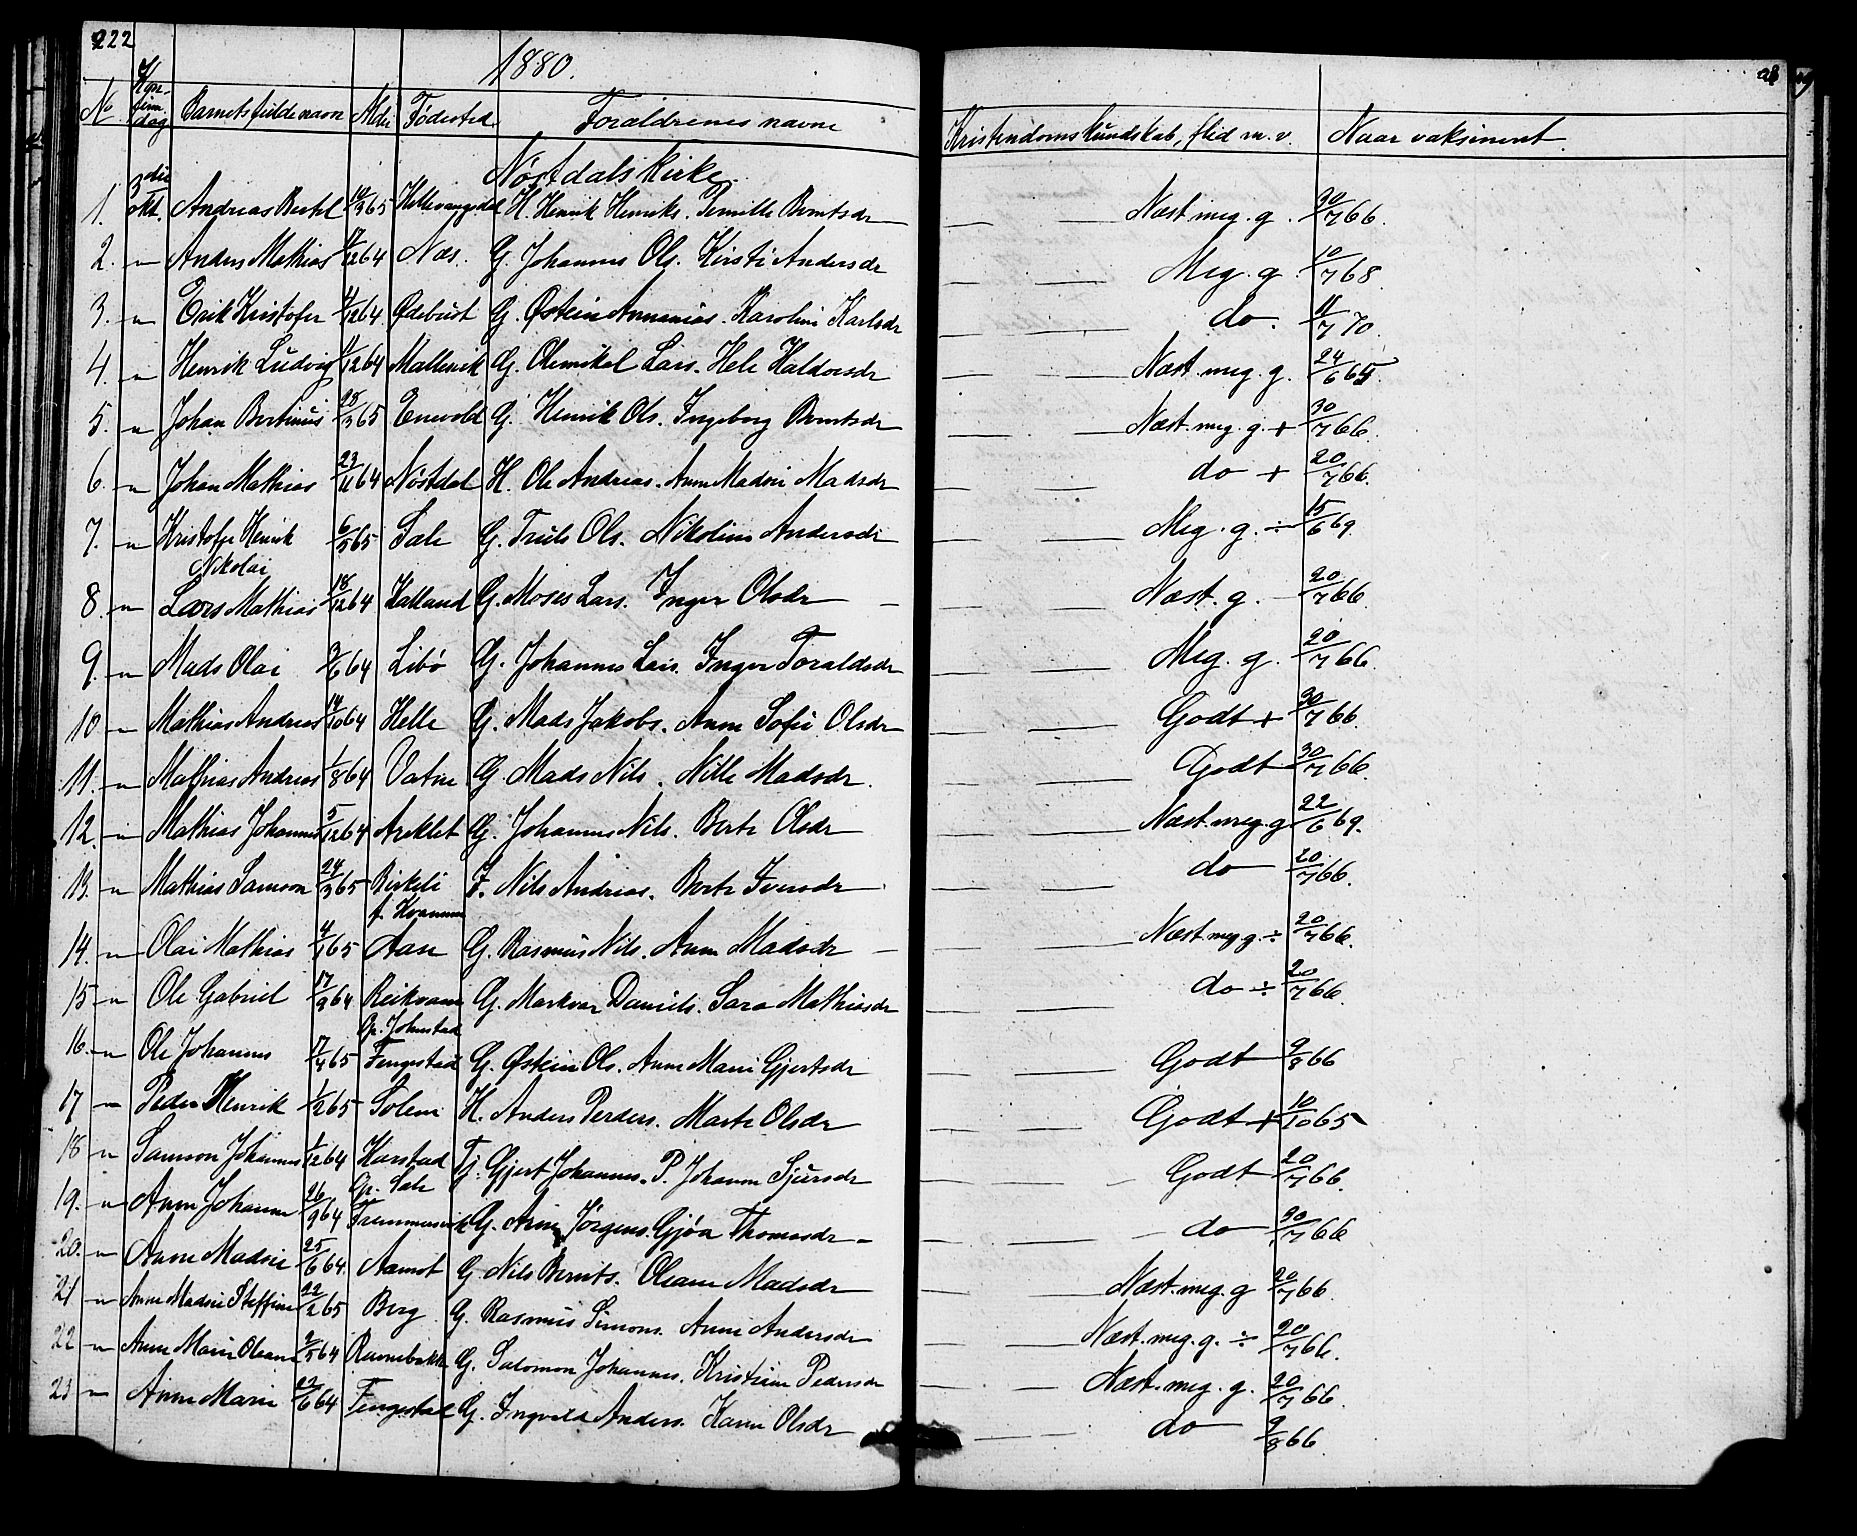 222
1880.
No Konfirm. dag Barnets fulde navn Alder Fødested Forældrenes navne Kristendomskundskab, flid m. v. Naar vaksineret.
Nøstdals kirke.
1. 3die okt. Andreas Bertel 14/3 65 H. Henrik Henriks. Pernille Berntsdr Næst meg. g. 30/7 66.
2. " Anders Mathias 17/12 64 Næs. G. Johannes Ols. Kirsti Andersdr Meg. g. 10/7 68
3. " Erik Kristofer 4/12 64 Ødebust G. Østein Annanias. Karoline Karlsdr do. 11/7 70.
4. " Henrik Ludvig 11/12 64 G. Olemikal Lars. Hele Haldorsdr Næst meg. g. 24/6 65.
5. " Johan Bertinus 25/3 65 Enevold G. Henrik Ols. Ingeborg Berntsdr Næst. meg. g. + 30/7 66.
6. " Johan Mathias 23/11 64 Nøstdal H. Ole Andreas. Anne Madsi Madsdr do + 20/7 66.
7. " Kristofer Henrik Nikolai 6/5 65 Sæle G. Truls Ols. Nikoline Andersdr Meg. g. ÷ 15/6 69.
8. " Lars Mathias 18/12 64 Kalland G. Moses Lars. Inger Olsdr Næst. g. 20/7 66.
9. " Mads Olai 9/6 64 Libø G. Johannes Lars. Inger Toraldsdr Meg. g. 20/7 66.
10 " Mathias Andreas 14/10 64 Helle G. Mads Jakobs. Anne Sofie Olsdr Godt + 30/7 66.
11. " Mathias Andreas 1/8 64 Vatne G. Mads Nils. Nille Madsdr. Godt 30/7 66.
12. " Mathias Johannes 5/12 64 Arklet G. Johannes Nils. Berte Olsdr Næst. meg. g 22/6 69.
13. " Mathias Samson 24/3 65 Birkeli f. Kvamme F. Nils Andreas. Berte Iversdr do 20/7 66.
14. " Olai Mathias 4/1 65 Aase G. Rasmus Nils. Anne Madsdr Næst meg g. ÷ 20/7 66.
15 " Ole Gabriel 17/9 64 Reikvam G. Markvar Daniels. Sara Mathiasdr do ÷ 20/7 66.
16. " Ole Johannes 17/4 65 Op. Johnstad Fengestad G. Østein Ols. Anne Marie Gjertsdr Godt 9/8 66
17 " Peder Henrik 1/2 65 Solem H. Anders Perders. Marte Olsdr Godt + 10/10 65
18 " Samson Johannes 1/12 64 Karstad Tj. Gjert Johannes. P. Johanne Sjursdr Godt 20/7 66.
19. " Anne Johanne 26/9 64 Op. Sæle G. Arne Jørgens. Gjøa Thomasdr do 30/7 66
20. " Anne Madsie 25/6 64. Aamot G. Nils Bernts. Oleane Madsdr Næst. meg. g 20/7 66.
21 " Anne Madsie Steffine 22/2 65 Berg G. Rasmus Simons. Anne Andersdr Næst. meg. g. ÷ 20/7 66.
22 " Anne Marie Oleane 2/5 64 Ravnebakke G. Salomon Johannes. Kristine Pedersdr Næst. meg. g. 20/7 66.
23 " Anne Marie 22/6 64 Fengestad G. Ingvald Anders. Kari Olsdr do 9/8 66.